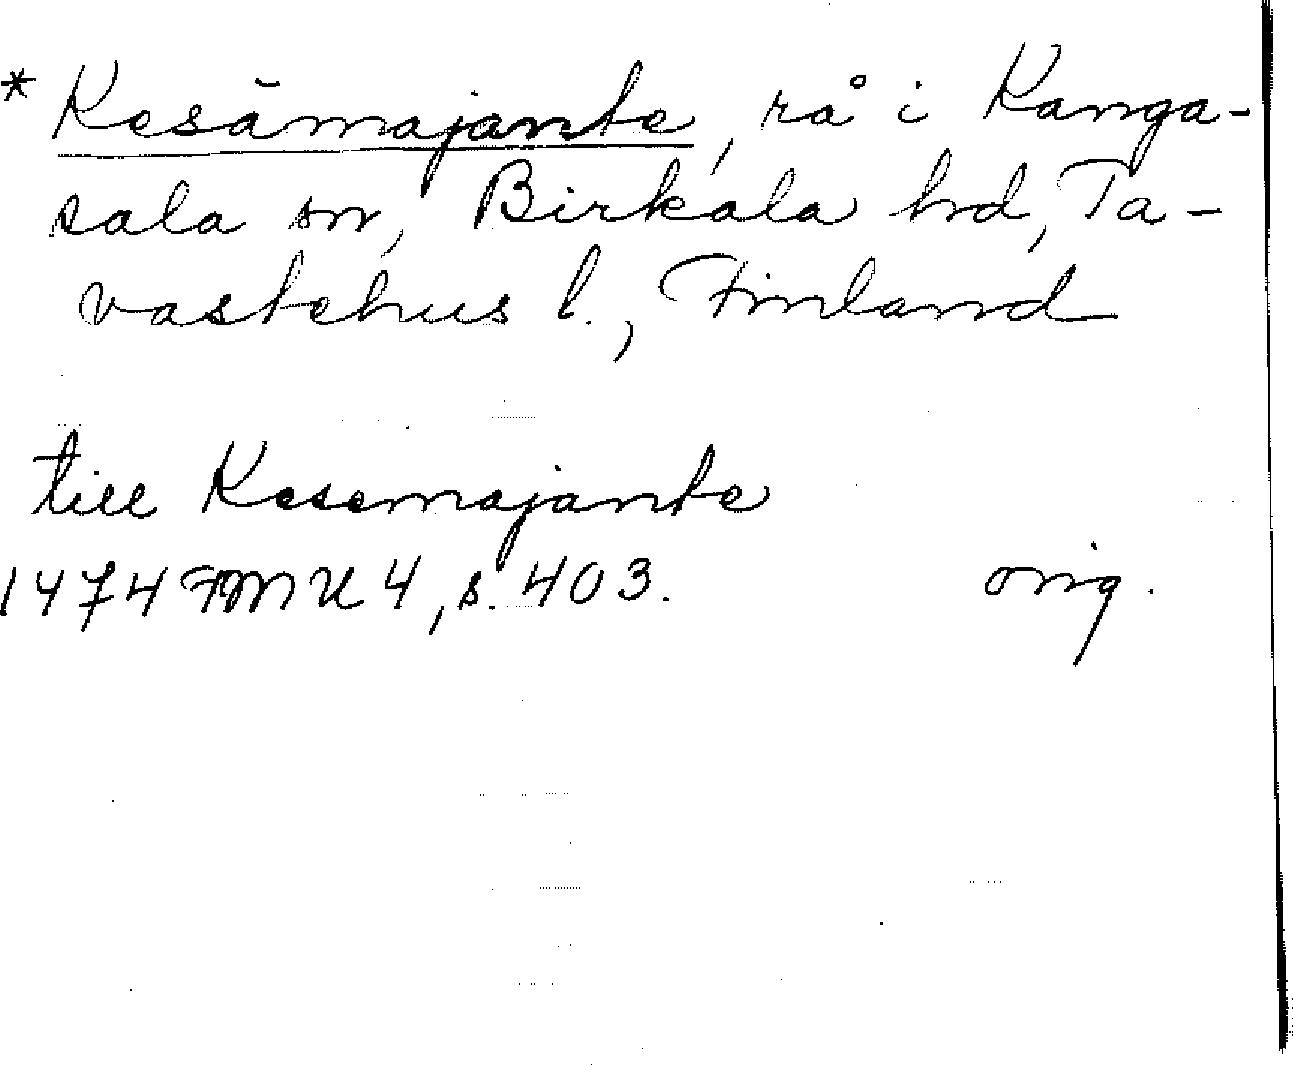 * Kesämajante, rå i Kanga-
sala sn, Birkala hd, Ta-
vastehus l., Finland
till Kesemajante
1474 FMU 4, s. 403. orig.